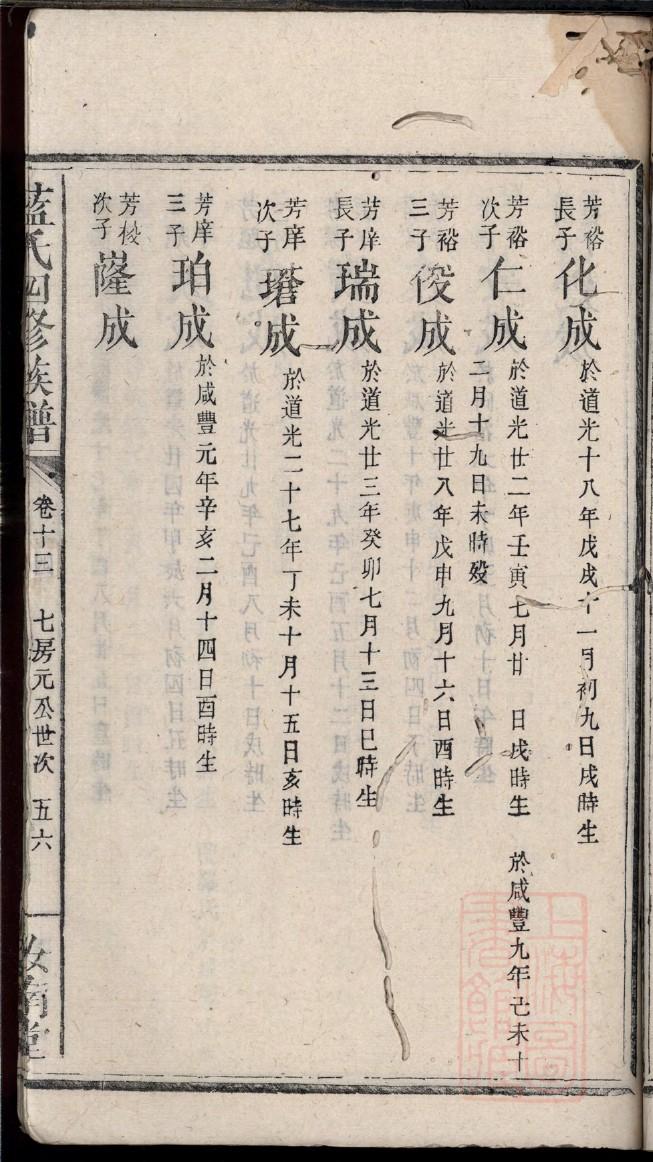 芳裕長子化成於道光十八年戊戌十一月初九日戌時生
芳裕次子仁成於道光廿二年壬寅七月廿 日戌時生 於咸豐九年己未十
二月十九日未時歿
芳裕三子俊成於道光廿八年戊申九月十六日酉時生
芳庠長子瑞成於道光廿三年癸卯七月十三日巳時生
芳庠次子 成於道光二十七年丁未十月十五日亥時生
芳庠三子珀成於咸豐元年辛亥二月十四日酉時生
芳 次子嶐成
藍氏四修族譜 卷十三 七房元公世次 五六 汝南堂
上海圖書館藏